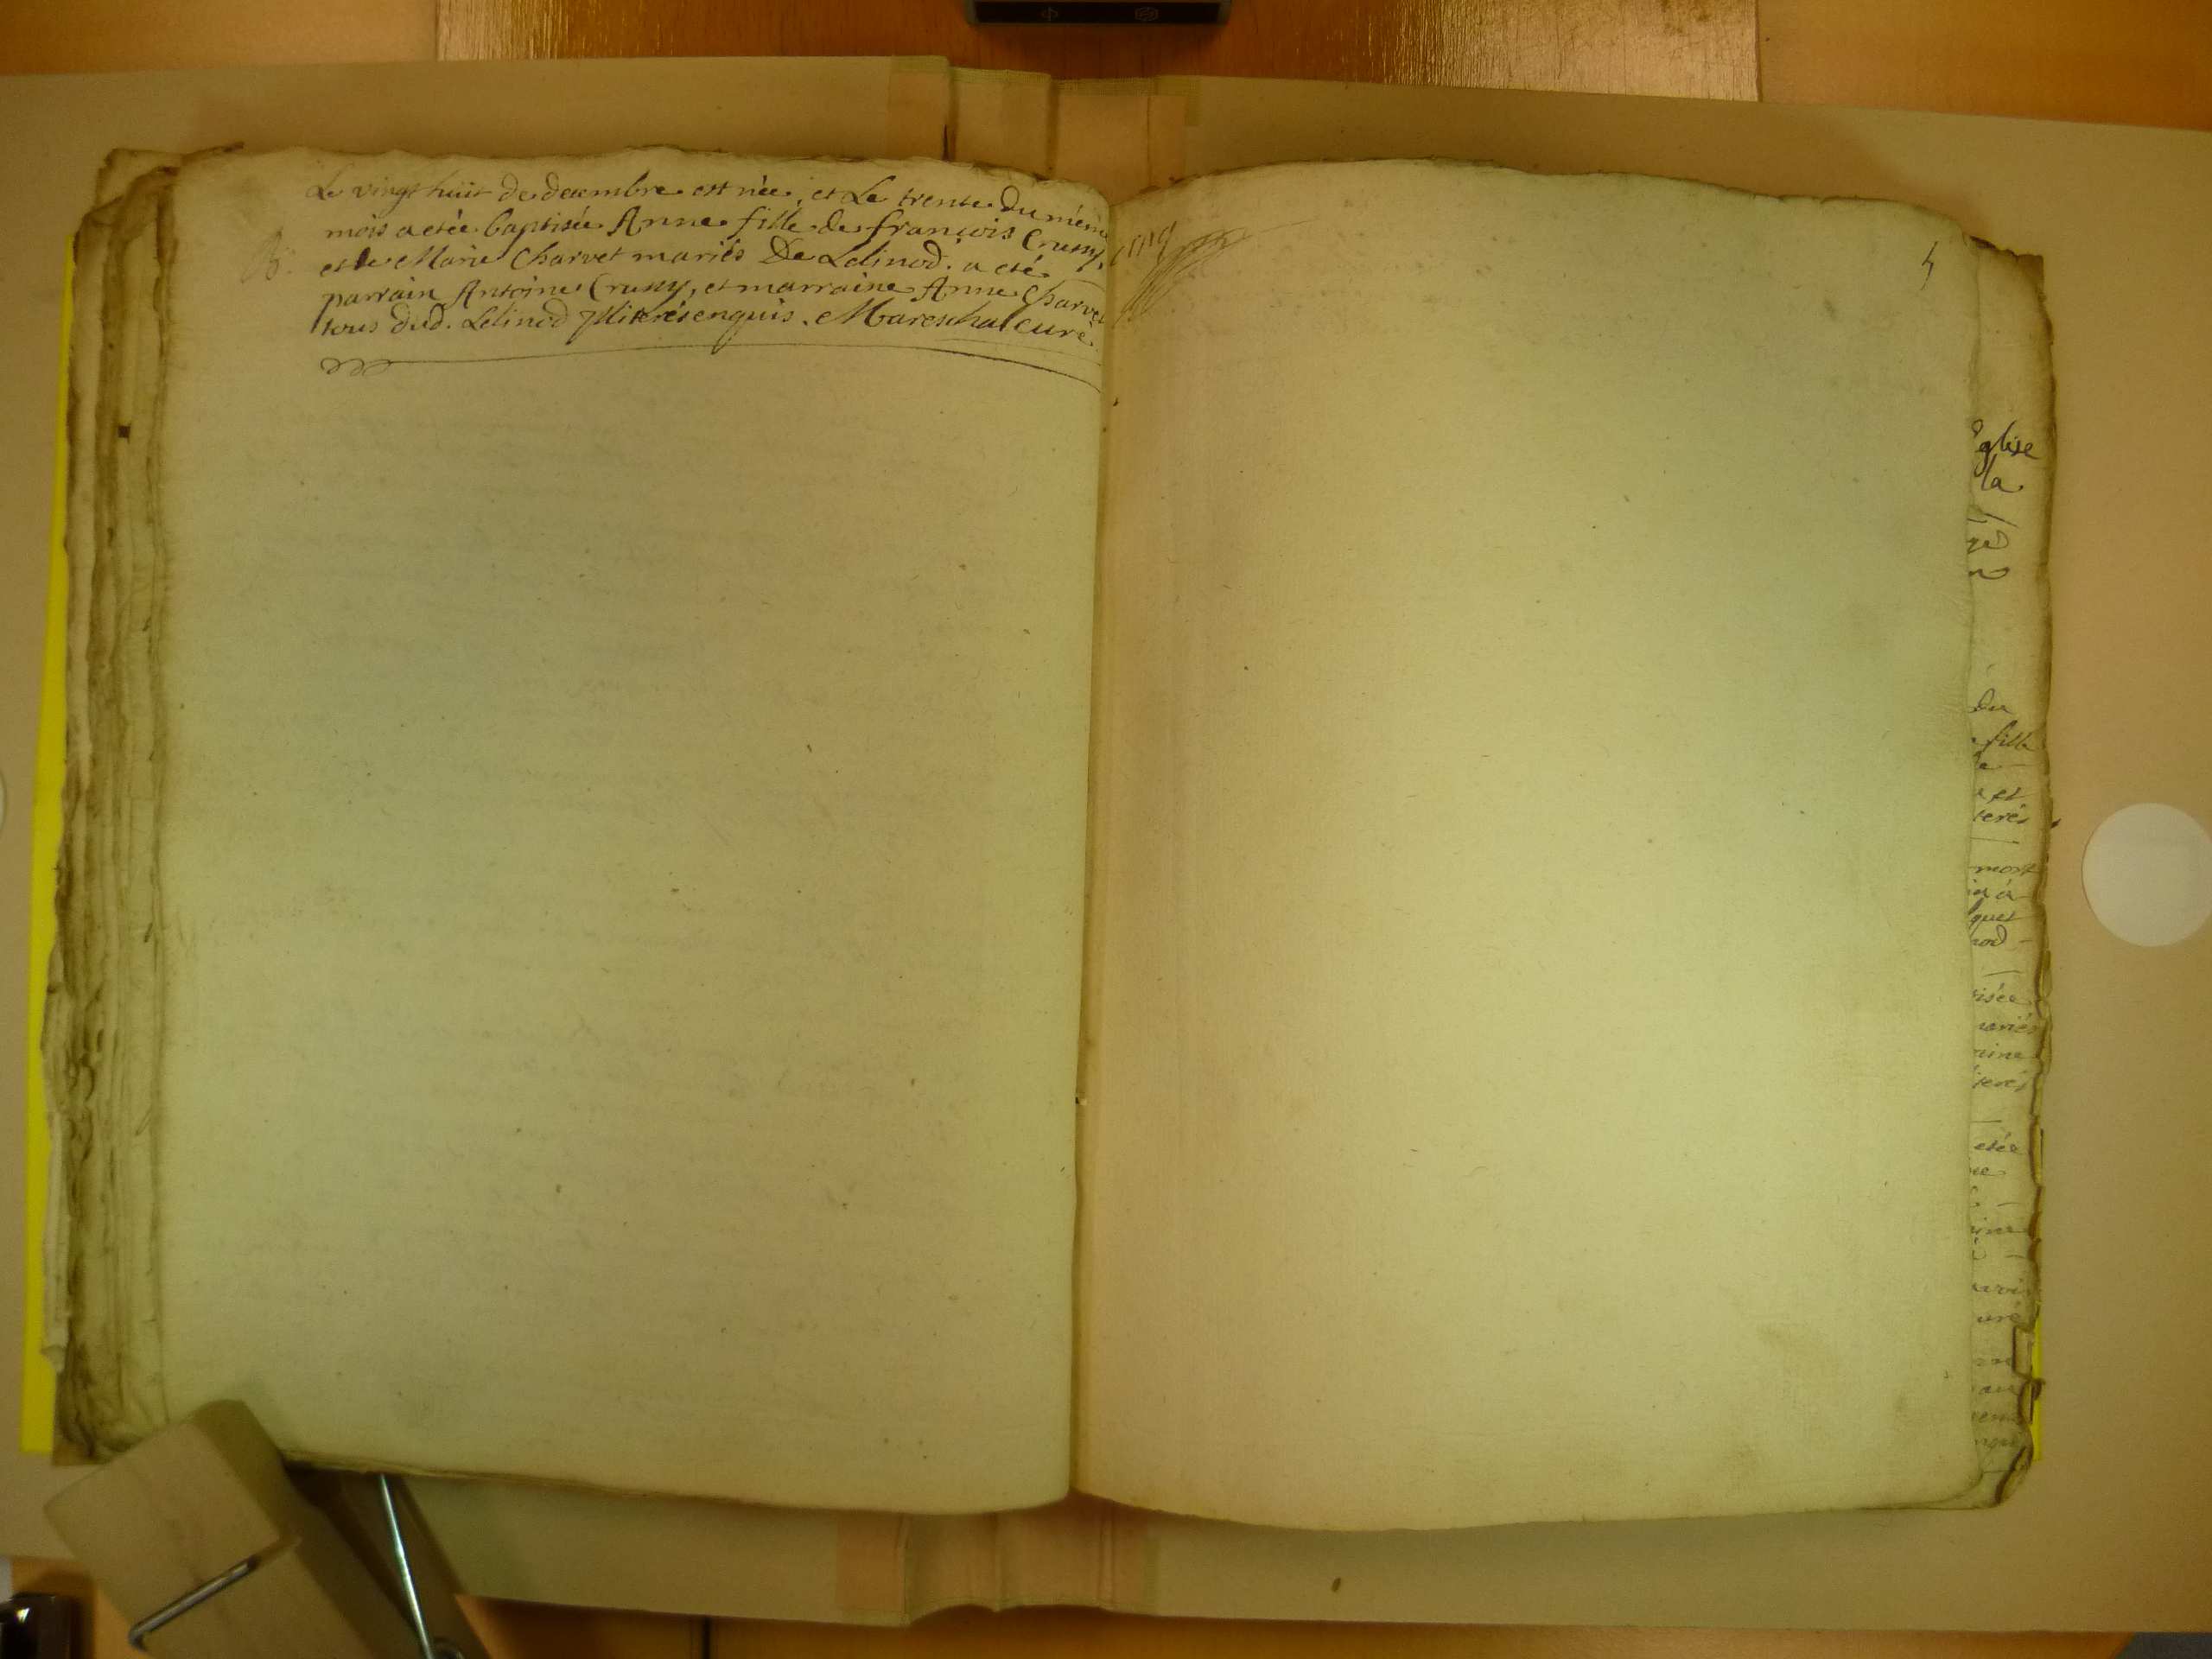 Le vingt huit de decembre est née, et Le trente du même
mois a etée baptisée Anne fille de françois Crussy,
et de Marie Charvet mariés De Lelinod. a eté
parrain Antoine Crussy, et marraine Anne Charvet
tous dud. Lelinod Illiterés enquis. Mareschal Curé
B.
église
la
du
fille
et
terés
mort
à
quet
nod
tisée
mariés
raine
terés
etée